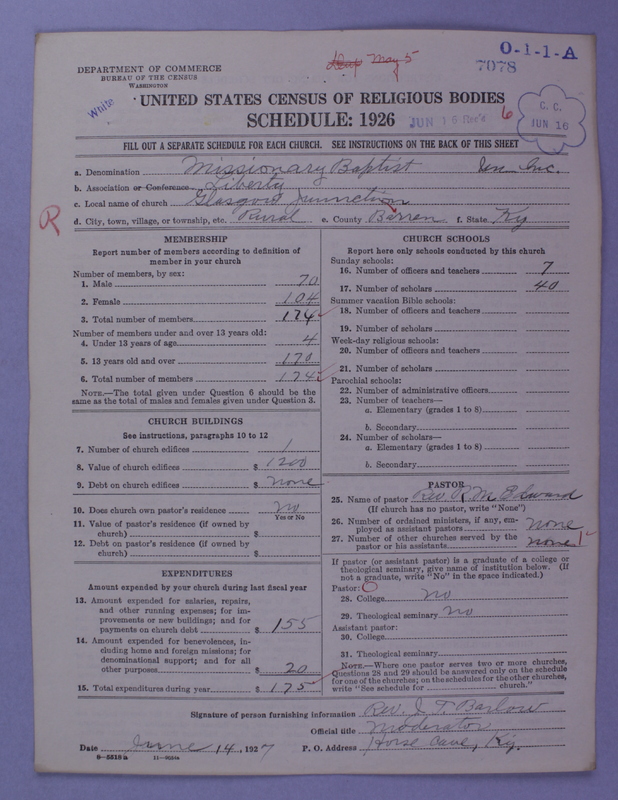 O-1-1-A
May 5
7078
DEPARTMENT OF COMMERCE
BUREAU OF THE CENSUS
WASHINGTON
White
UNITED STATES CENSUS OF RELIGIOUS BODIES
SCHEDULE: 1926
JUN 16 Rec'd
6
C. C.
JUN 16
FILL OUT A SEPARATE SCHEDULE FOR EACH CHURCH. SEE INSTRUCTIONS ON THE BACK OF THIS SHEET
a. Denomination Missionary Baptist
b. Association or Conference Liberty
c. Local name of church Glasgow Junction
R
d. City, town, village, or township, etc. Rural e. County Barren f. State Ky
MEMBERSHIP
Report number of members according to definition of
member in your church
Number of members, by sex:
1. Male 70
2. Female 104
3. Total number of members 174
Number of members under and over 13 years old:
4. Under 13 years of age 4
5. 13 years old and over 170
6. Total number of members 174
NOTE.—The total given under Question 6 should be the
same as the total of males and females given under Question 3.
CHURCH BUILDINGS
See instructions, paragraphs 10 to 12
7. Number of church edifices 1
8. Value of church edifices $ 1200
9. Debt on church edifices $ none
10. Does church own pastor's residence No
Yes or No
11. Value of pastor's residence (if owned by
church) $
12. Debt on pastor's residence (if owned by
church) $
EXPENDITURES
Amount expended by your church during last fiscal year
13. Amount expended for salaries, repairs,
and other running expenses; for im-
provements or new buildings; and for
payments on church debt $ 155
14. Amount expended for benevolences, in-
cluding home and foreign missions; for
denominational support; and for all
other purposes $ 20
15. Total expenditures during year $ 175
CHURCH SCHOOLS
Report here only schools conducted by this church
Sunday schools:
16. Number of officers and teachers 7
17. Number of scholars 40
Summer vacation Bible schools:
18. Number of officers and teachers
19. Number of scholars
Week-day religious schools:
20. Number of officers and teachers
21. Number of scholars
Parochial schools:
22. Number of administrative officers
23. Number of teachers—
a. Elementary (grades 1 to 8)
b. Secondary
24. Number of scholars—
a. Elementary (grades 1 to 8)
b. Secondary
PASTOR
25. Name of pastor Rev. R. M. Edward
(If church has no pastor, write "None")
26. Number of ordained ministers, if any, em-
ployed as assistant pastors none
27. Number of other churches served by the
pastor or his assistants none 1
If pastor (or assistant pastor) is a graduate of a college or
theological seminary, give name of institution below. (If
not a graduate, write "No" in the space indicated.)
Pastor:
28. College no
29. Theological seminary no
Assistant pastor:
30. College
31. Theological seminary
NOTE.—Where one pastor serves two or more churches,
Questions 28 and 29 should be answered only on the schedule
for one of the churches; on the schedules for the other churches,
write "See schedule for church."
Signature of person furnishing information Rev. J T Barlow
Official title Moderator
Date June 14, 1927 P. O. Address Horse Cave, Ky.